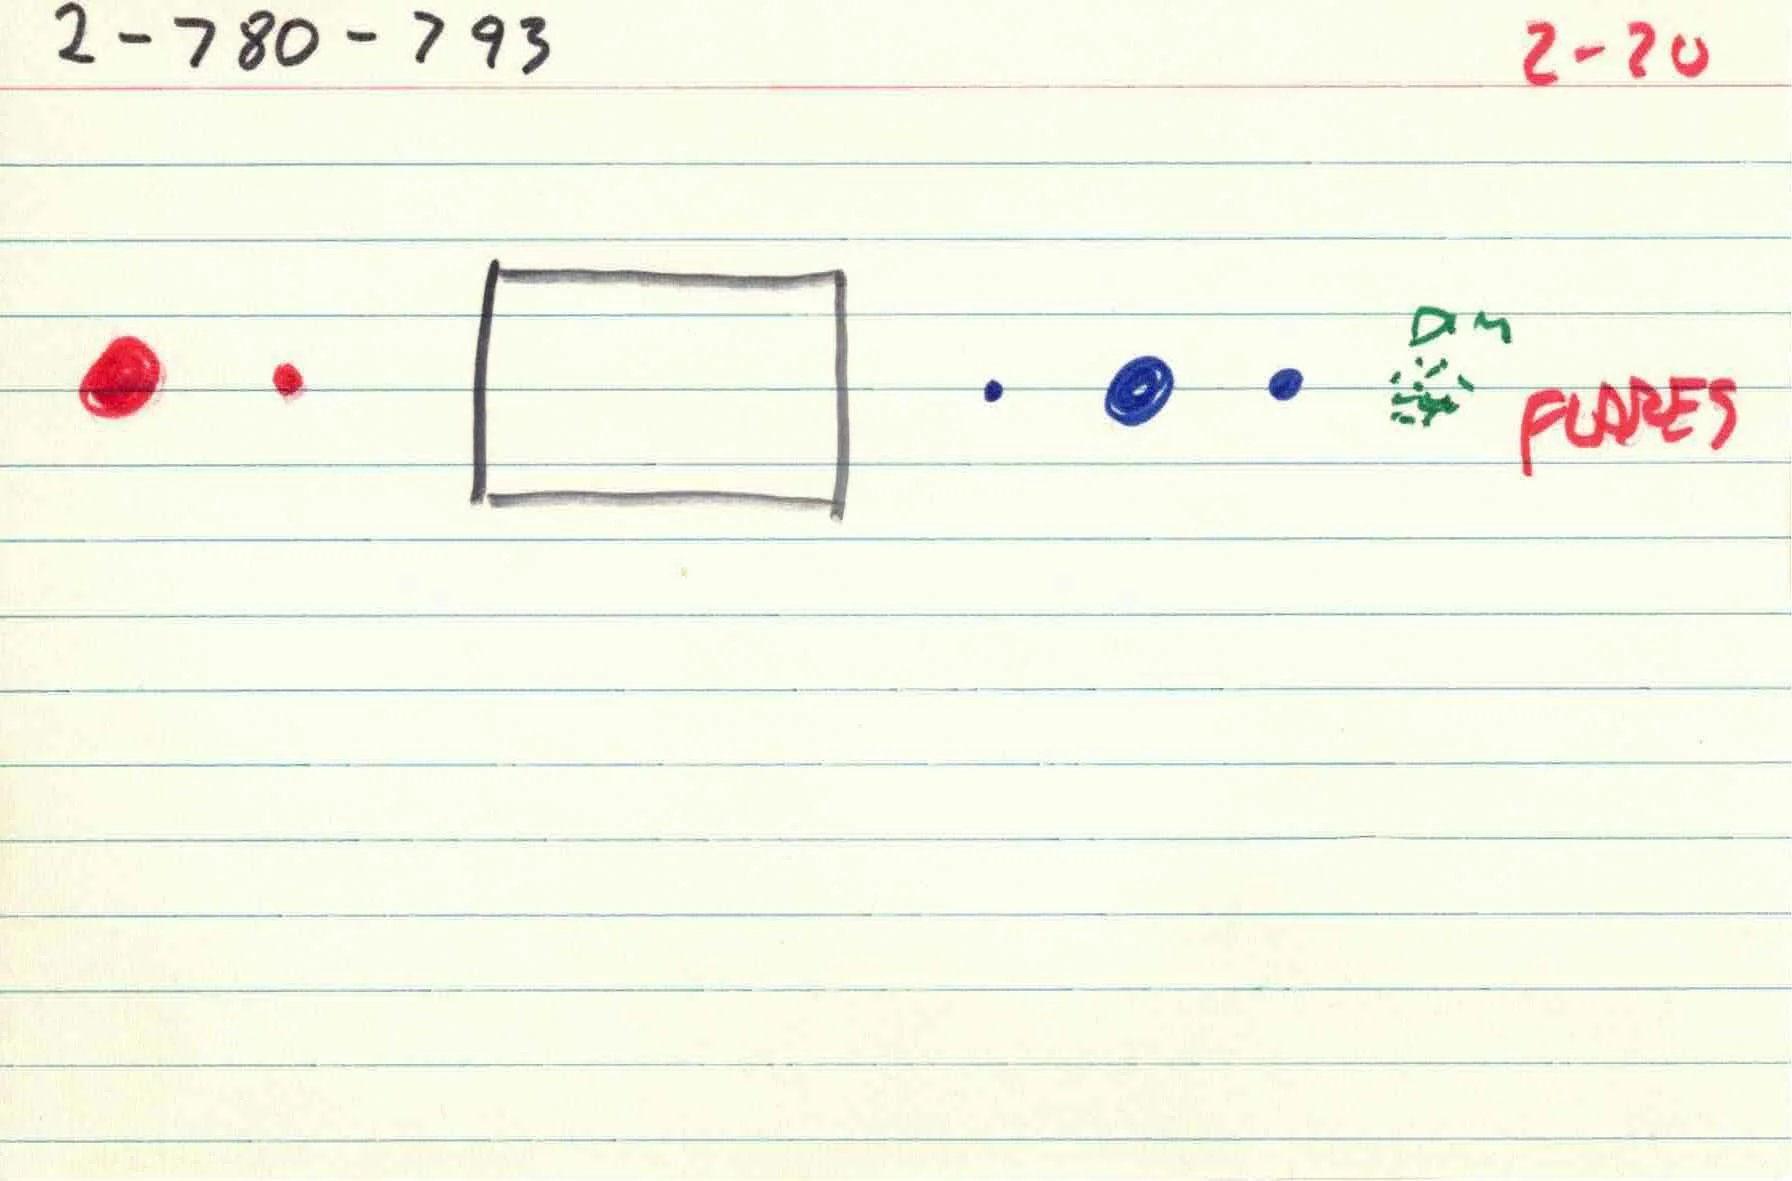 2-780-793
2-20
DM
FLARES